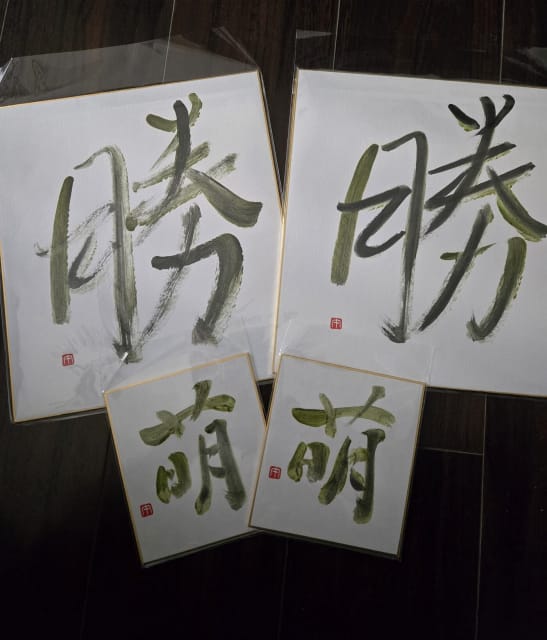 勝
勝
萌
萌